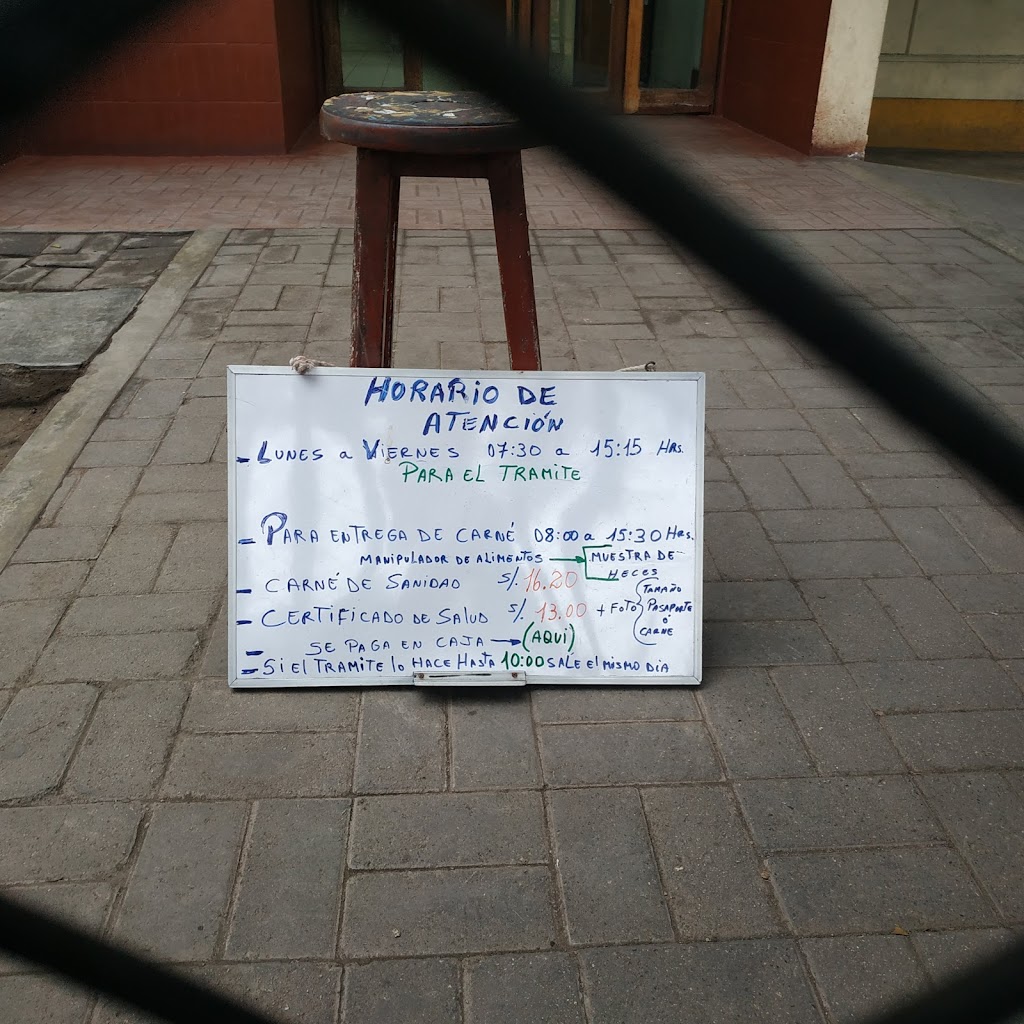 HORARIO DE
ATENCIÓN
- LUNES a VIERNES 07:30 a 15:15 HRS.
PARA EL TRAMITE
- PARA ENTREGA DE CARNÉ 08:00 a 15:30 HRS.
MANIPULADOR DE ALIMENTOS → MUESTRA DE
HECES
- CARNÉ DE SANIDAD S/. 16.20
- CERTIFICADO DE SALUD S/. 13.00 + FOTO
TAMAÑO
PASAPORTE
ó
CARNE
- SE PAGA EN CAJA → (AQUÍ)
- SI EL TRAMITE lo HACE HASTA 10:00 SALE El MISMO DIA